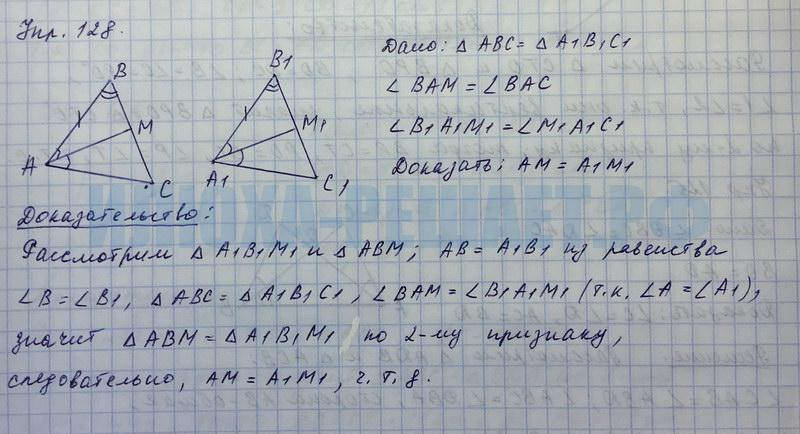 Упр. 128.
B
M
A
C
B1
M1
A1
C1
Дано: △ ABC = △ A1B1C1
∠ BAM = ∠ BAC
∠ B1A1M1 = ∠ M1A1C1
Доказать: AM = A1M1
Доказательство:
Рассмотрим △ A1B1M1 и △ ABM; AB = A1B1 из равенства
∠B = ∠B1, △ ABC = △ A1B1C1, ∠BAM = ∠B1A1M1 (т.к. ∠A = ∠A1),
значит △ABM = △A1B1M1 по 2-му признаку,
следовательно, AM = A1M1, ч. т. д.